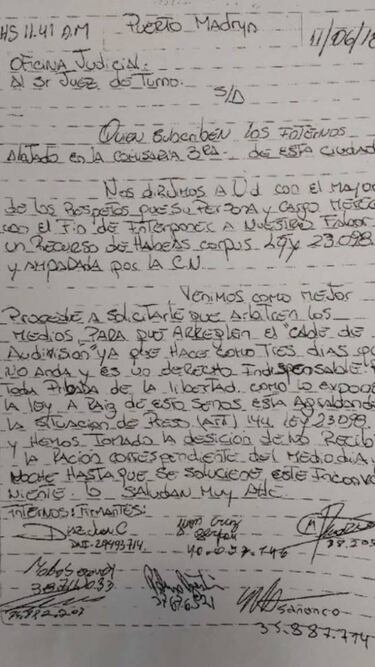 HS 11.41 A.M PUERTO MADRYN 11/06/18
OFICINA JUDICIAL:
Al Sr JUEZ de TURNO.
S/D
QUIEN SUBSCRIBEN LOS INTERNOS
Alojado en la COMISARIA 3RA. de ESTA CIUDAD
NOS DIRIJIMOS A Ud CON EL MAYOR
de los RESPETOS QUE SU PERSONA y CARGO MERECE
CON EL FIN de INTERPONER A NUESTRO FAVOR
UN RECURSO de HABEAS CORPUS LEY 23.098
Y AMPARADA POR LA C.N
VENIMOS COMO MEJOR
PROCEDE A SOLICITARLE QUE ARBITREN LOS
MEDIOS PARA QUE ARREGLEN EL "CABLE DE
AUDIVISION" YA QUE HACE COMO TRES DIAS QUE
NO ANDA Y ES UN DERECHO INDISPENSABLE
TODA PRIBADA DE LA LIBERTAD COMO LO EXPONE
LA LEY A RAIZ DE ESTO SE NOS ESTA AGRAVANDO
LA SITUACION DE PRESO (ART) 144 LEY 23098
Y HEMOS TOMADO LA DESICION DE NO RECIBIR
LA RACION CORRESPONDIENTE DEL MEDIO DIA Y
NOCHE HASTA QUE SE SOLUCIONE ESTE INCONVE
NIENTE. LO SALUDAN MUY ATTE.
INTERNOS: FIRMANTES:
35.887.774